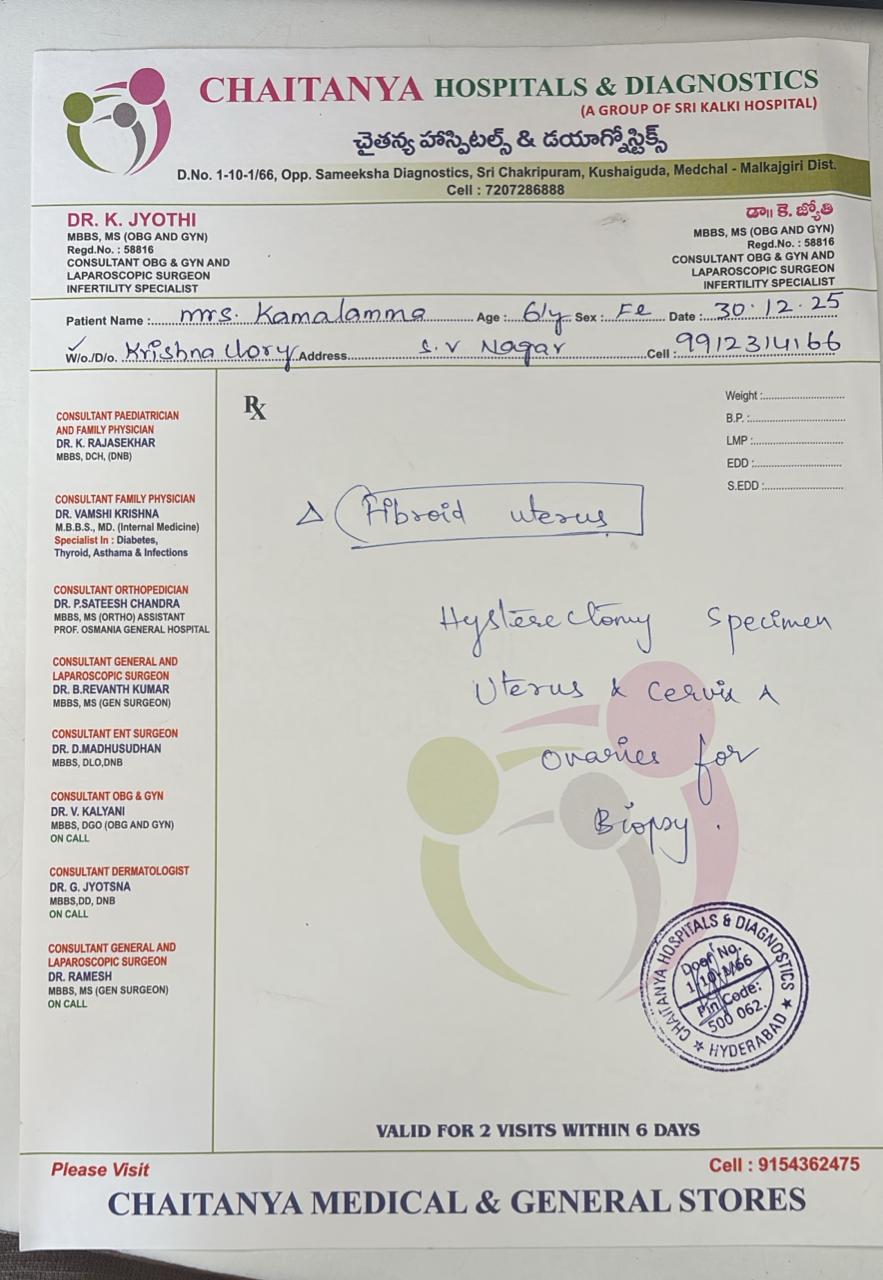 CHAITANYA HOSPITALS & DIAGNOSTICS
(A GROUP OF SRI KALKI HOSPITAL)
చైతన్య హాస్పిటల్స్ & డయాగ్నోస్టిక్స్
D.No. 1-10-1/66, Opp. Sameeksha Diagnostics, Sri Chakripuram, Kushaiguda, Medchal - Malkajgiri Dist.
Cell : 7207286888
DR. K. JYOTHI
MBBS, MS (OBG AND GYN)
Regd.No. : 58816
CONSULTANT OBG & GYN AND
LAPAROSCOPIC SURGEON
INFERTILITY SPECIALIST
డా౹౹ కె. జ్యోతి
MBBS, MS (OBG AND GYN)
Regd.No. : 58816
CONSULTANT OBG & GYN AND
LAPAROSCOPIC SURGEON
INFERTILITY SPECIALIST
Patient Name : mrs. Kamalamma Age : 61y Sex : Fe Date : 30.12.25
W/o./D/o. Krishna Address S.V Nagar Cell : 9912314166
CONSULTANT PAEDIATRICIAN
AND FAMILY PHYSICIAN
DR. K. RAJASEKHAR
MBBS, DCH, (DNB)
CONSULTANT FAMILY PHYSICIAN
DR. VAMSHI KRISHNA
M.B.B.S., MD. (Internal Medicine)
Specialist In : Diabetes,
Thyroid, Asthama & Infections
CONSULTANT ORTHOPEDICIAN
DR. P.SATEESH CHANDRA
MBBS, MS (ORTHO) ASSISTANT
PROF. OSMANIA GENERAL HOSPITAL
CONSULTANT GENERAL AND
LAPAROSCOPIC SURGEON
DR. B.REVANTH KUMAR
MBBS, MS (GEN SURGEON)
CONSULTANT ENT SURGEON
DR. D.MADHUSUDHAN
MBBS, DLO,DNB
CONSULTANT OBG & GYN
DR. V. KALYANI
MBBS, DGO (OBG AND GYN)
ON CALL
CONSULTANT DERMATOLOGIST
DR. G. JYOTSNA
MBBS,DD, DNB
ON CALL
CONSULTANT GENERAL AND
LAPAROSCOPIC SURGEON
DR. RAMESH
MBBS, MS (GEN SURGEON)
ON CALL
Rx
Weight :
B.P. :
LMP :
EDD :
S.EDD :
Δ Fibroid uterus
Hysterectomy Specimen
Uterus & Cervix &
Ovaries for
Biopsy.
CHAITANYA HOSPITALS & DIAGNOSTICS
Door No.
1-10-1/66
Pin Code:
500 062.
★ HYDERABAD ★
VALID FOR 2 VISITS WITHIN 6 DAYS
Please Visit
Cell : 9154362475
CHAITANYA MEDICAL & GENERAL STORES